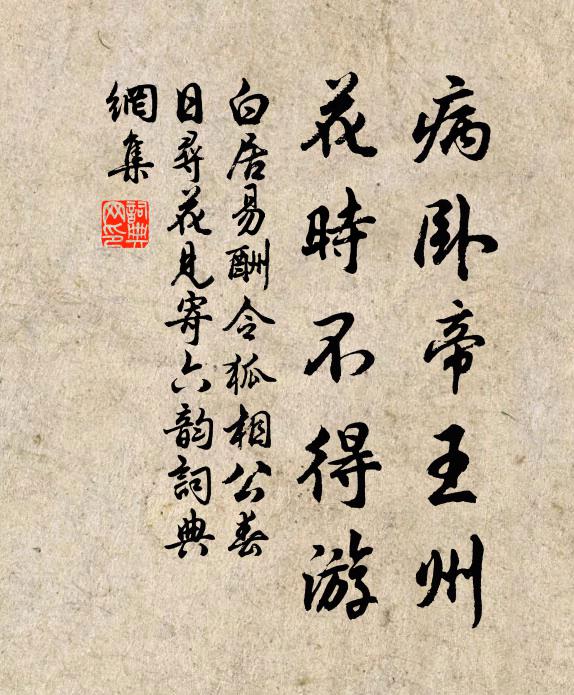 病卧帝王州
花時不得游
白居易酬令狐相公春
日尋花見寄六韵詞典
網集
詞典
网印